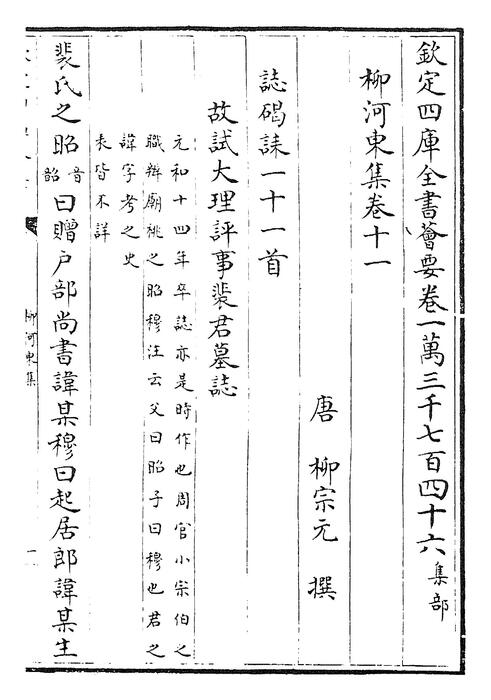 欽定四庫全書薈要卷一萬三千七百四十六集部
柳河東集卷十一
唐 柳宗元 撰
誌碣誄一十一首
故試大理評事裴君墓誌
元和十四年卒誌亦是時作也周官小宗伯之
職辨廟祧之昭穆注云父曰昭子曰穆也君之
諱字考之史
表皆不詳
裴氏之昭音韶曰贈户部尚書諱某穆曰起居郎諱某生
柳河東集